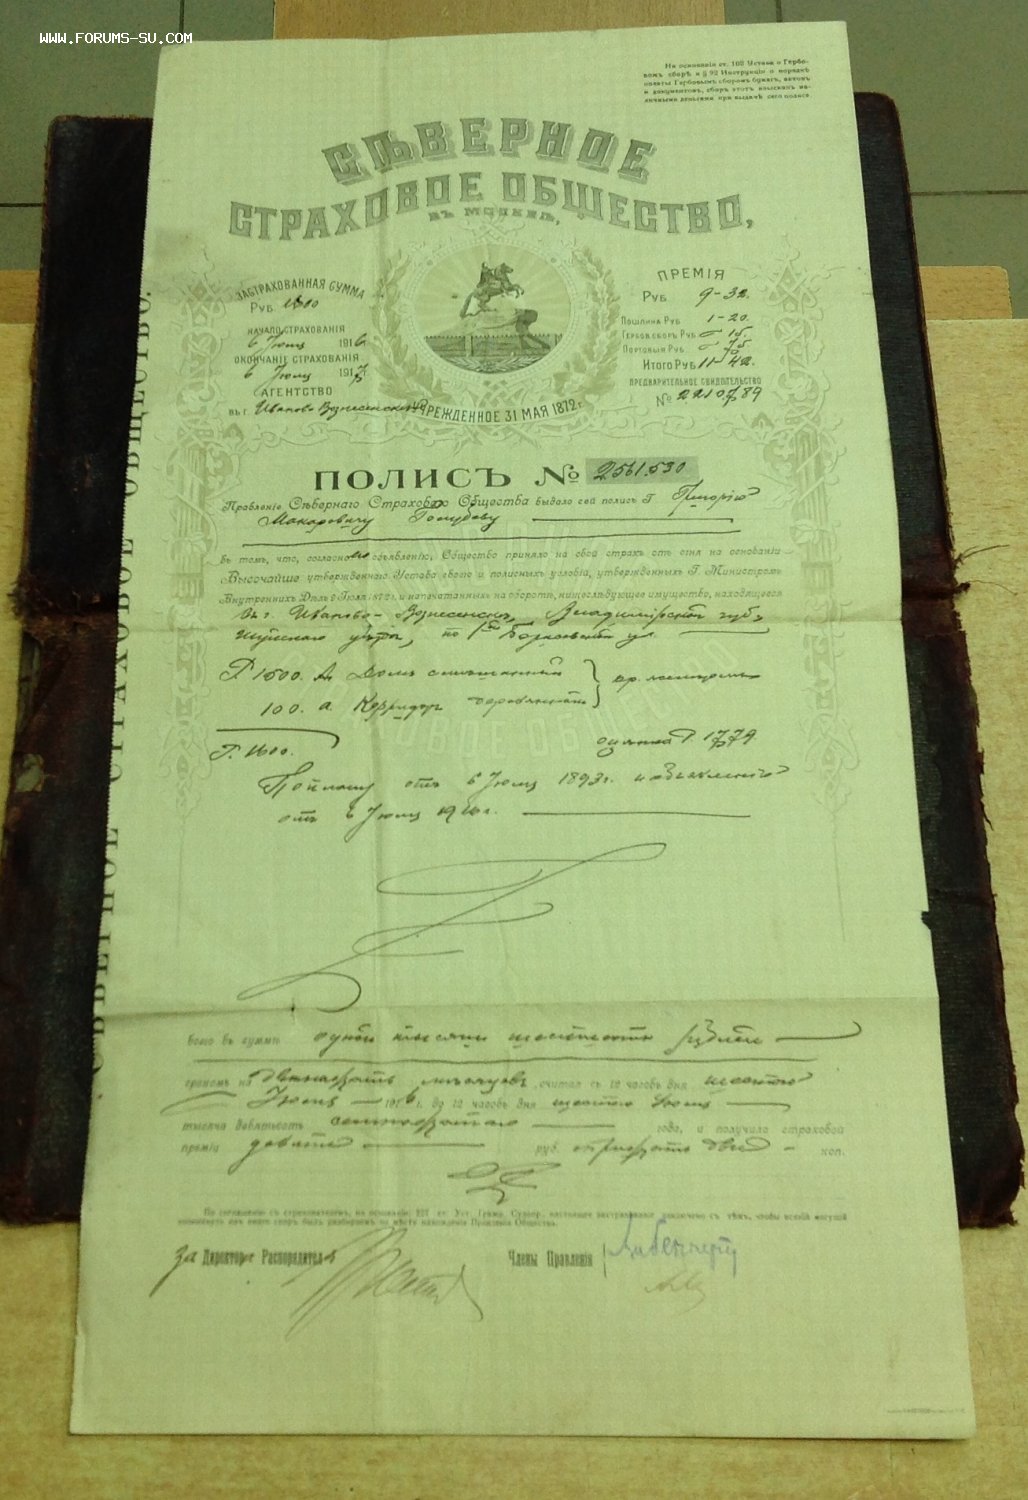 WWW.FORUMS-SU.COM
На основаніи ст. 108 Устава о Гербо-
вомъ сборѣ и § 92 Инструкціи о порядкѣ
уплаты Гербовымъ сборомъ бумагъ, актовъ
и документовъ, сборъ этотъ взысканъ на-
личными деньгами при выдачѣ сего полиса
СѢВЕРНОЕ
СТРАХОВОЕ ОБЩЕСТВО,
ВЪ МОСКВѢ,
ЗАСТРАХОВАННАЯ СУММА
РУБ. 1600
НАЧАЛО СТРАХОВАНІЯ
6 Іюня 1916
ОКОНЧАНІЕ СТРАХОВАНІЯ
6 Іюня 1917
АГЕНТСТВО
въ г. Иваново-Вознесенскѣ
ПРЕМІЯ
РУБ. 9-32.
ПОШЛИНА РУБ 1-20
ГЕРБОВ. СБОР. РУБ 15.
ПОРТОВЫЯ РУБ. 75
ИТОГО РУБ 11-42.
ПРЕДВАРИТЕЛЬНОЕ СВИДѢТЕЛЬСТВО
№ 2210789
УЧРЕЖДЕННОЕ 31 МАЯ 1872 г.
ПОЛИСЪ № 2561.530
Правленіе Сѣвернаго Страховаго Общества выдало сей полисъ Г. Григорію
Макаровичу Голубеву
въ томъ, что, согласно его объявленію, Общество приняло на свой страхъ отъ огня на основаніи
Высочайше утвержденнаго Устава своего и полисныхъ условій, утвержденныхъ Г. Министромъ
Внутреннихъ Дѣлъ 2 Іюля 1872 г. и напечатанныхъ на оборотѣ, нижеслѣдующее имущество, находящееся
Въ г. Иваново-Вознесенскѣ, Владимірской губ.,
Шуйскаго уѣзда, по ул.
Р. 1500. А. Домъ смѣшанный
100. а. Корридоръ деревянный
Р. 1600. оцѣнка Р. 1779
По плану отъ 6 Іюня 1893 г. и объявленію
отъ 6 Іюня 1916 г.
всего въ суммѣ одной тысячи шестисотъ рублей
срокомъ на двѣнадцать мѣсяцевъ, считая съ 12 часовъ дня шестого
Іюня 1916 г. до 12 часовъ дня шестого Іюня
тысяча девятьсотъ семнадцатаго года, и получило страховой
преміи девять руб. тридцать двѣ коп.
По соглашенію съ страхователемъ, на основаніи 227 ст. Уст. Гражд. Судопр., настоящее застрахованіе заключено съ тѣмъ, чтобы всякій могущій
возникнуть изъ онаго споръ былъ разбираемъ по мѣсту нахожденія Правленія Общества.
за Директоръ Распорядитель
Члены Правленія
СѢВЕРНОЕ СТРАХОВОЕ ОБЩЕСТВО.